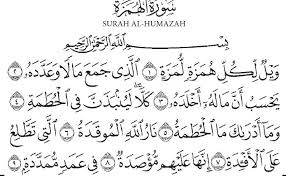 سُورَةُ الهُمَزَةِ
SURAH AL-HUMAZAH
بِسْمِ اللَّهِ الرَّحْمَٰنِ الرَّحِيمِ
وَيْلٌ لِكُلِّ هُمَزَةٍ لُمَزَةٍ ١ الَّذِي جَمَعَ مَالًا وَعَدَّدَهُ ٢
يَحْسَبُ أَنَّ مَالَهُ أَخْلَدَهُ ٣ كَلَّا لَيُنْبَذَنَّ فِي الْحُطَمَةِ ٤
وَمَا أَدْرَاكَ مَا الْحُطَمَةُ ٥ نَارُ اللَّهِ الْمُوقَدَةُ ٦ الَّتِي تَطَّلِعُ
عَلَى الْأَفْئِدَةِ ٧ إِنَّهَا عَلَيْهِمْ مُؤْصَدَةٌ ٨ فِي عَمَدٍ مُمَدَّدَةٍ ٩